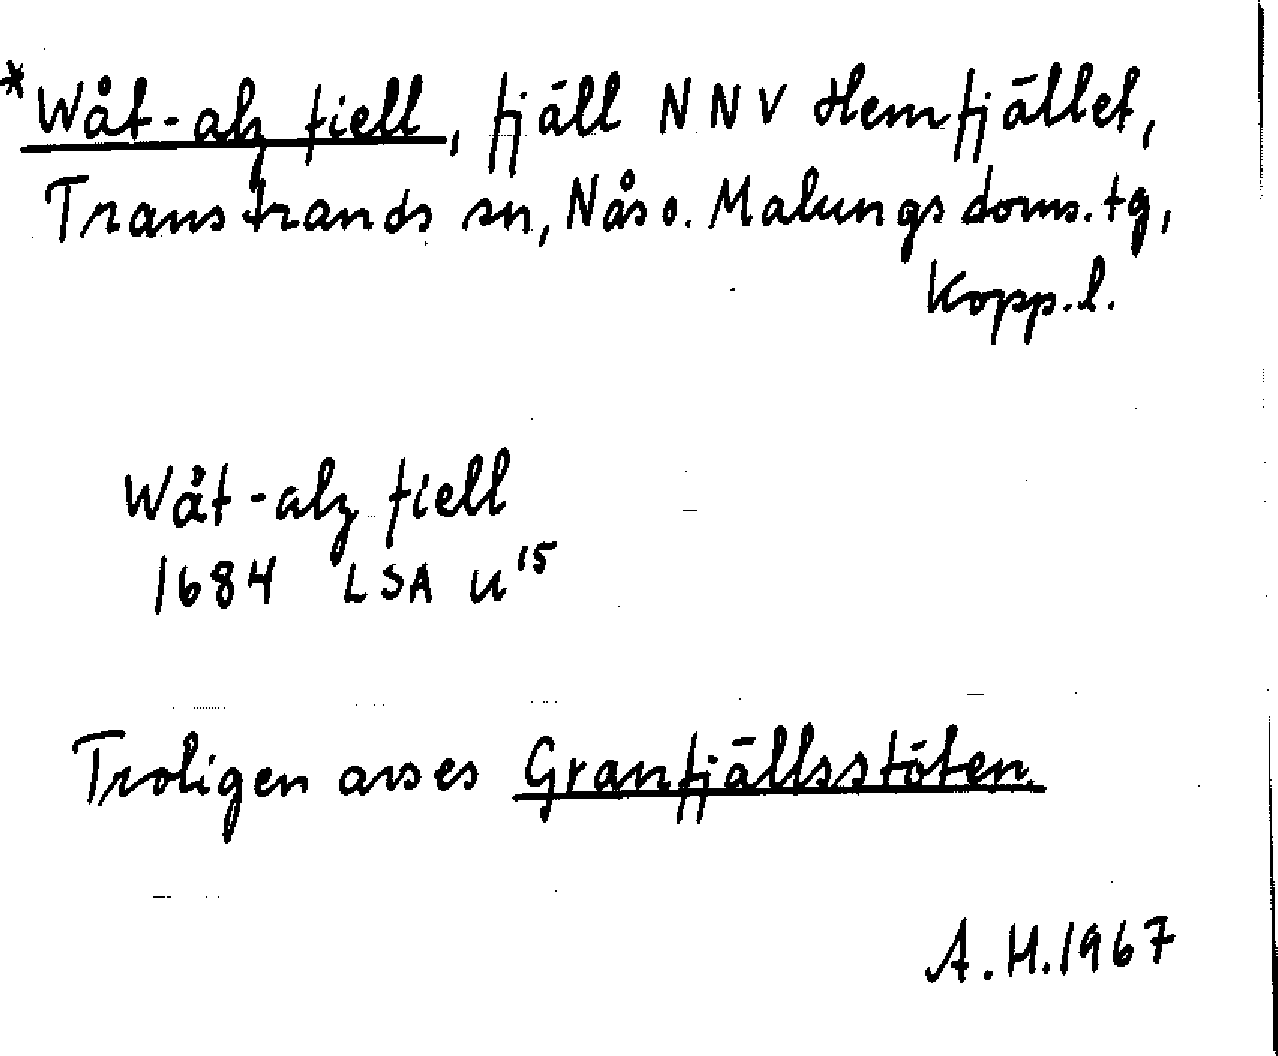 *Wåt-alz fiell, fjäll NNV Hemfjället,
Transtrands sn, Nås o. Malungs doms. tg,
Kopp. l.
Wåt-alz fiell
1684 LSA U¹⁵
Troligen avses Granfjällsstöten.
A.H. 1967